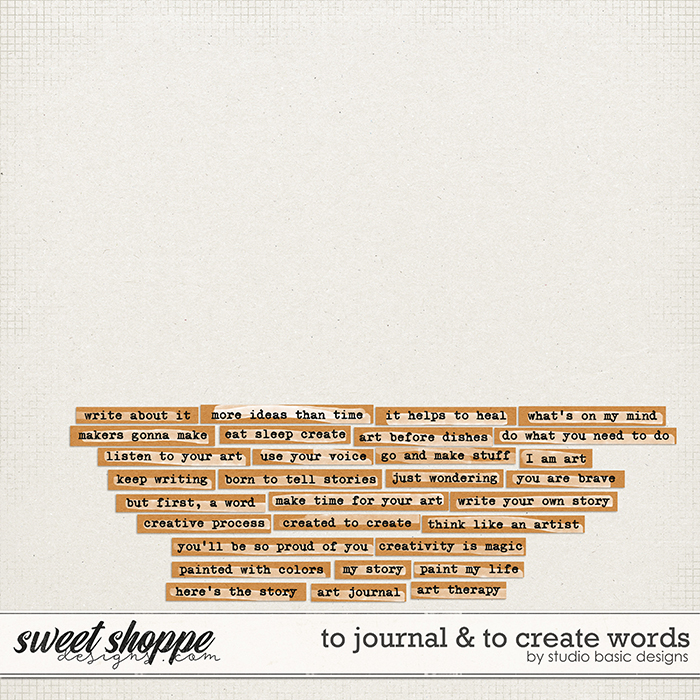 write about it more ideas than time it helps to heal what's on my mind
makers gonna make eat sleep create art before dishes do what you need to do
listen to your art use your voice go and make stuff I am art
keep writing born to tell stories just wondering you are brave
but first, a word make time for your art write your own story
creative process created to create think like an artist
you'll be so proud of you creativity is magic
painted with colors my story paint my life
here's the story art journal art therapy
sweet shoppe
designs.com
to journal & to create words
by studio basic designs